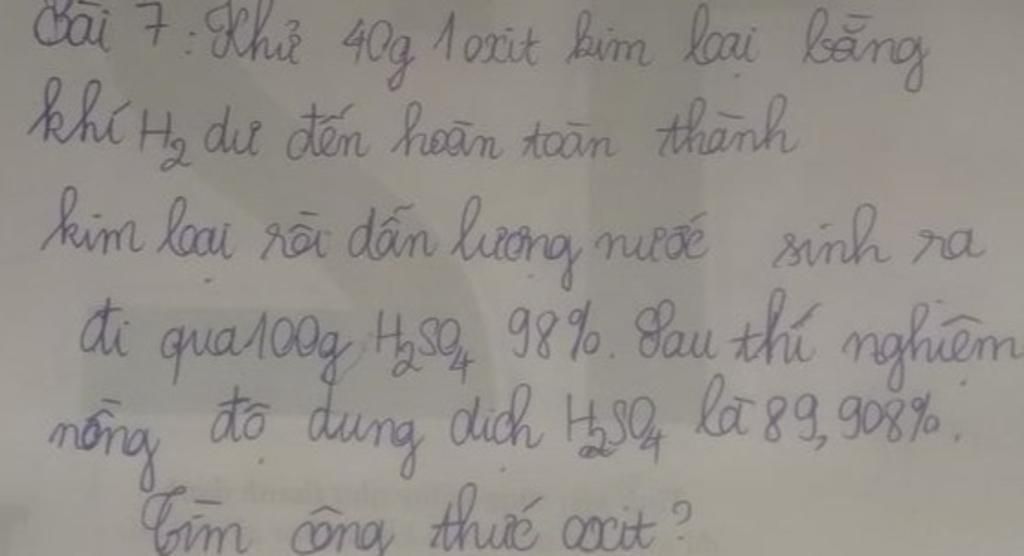 Bài 7: Khử 40g 1 oxit kim loại bằng
khí H₂ dư đến hoàn toàn thành
kim loại rồi dẫn lượng nước sinh ra
đi qua 100g H₂SO₄ 98%. Sau thí nghiệm
nồng độ dung dịch H₂SO₄ là 89,908%.
Tìm công thức oxit?